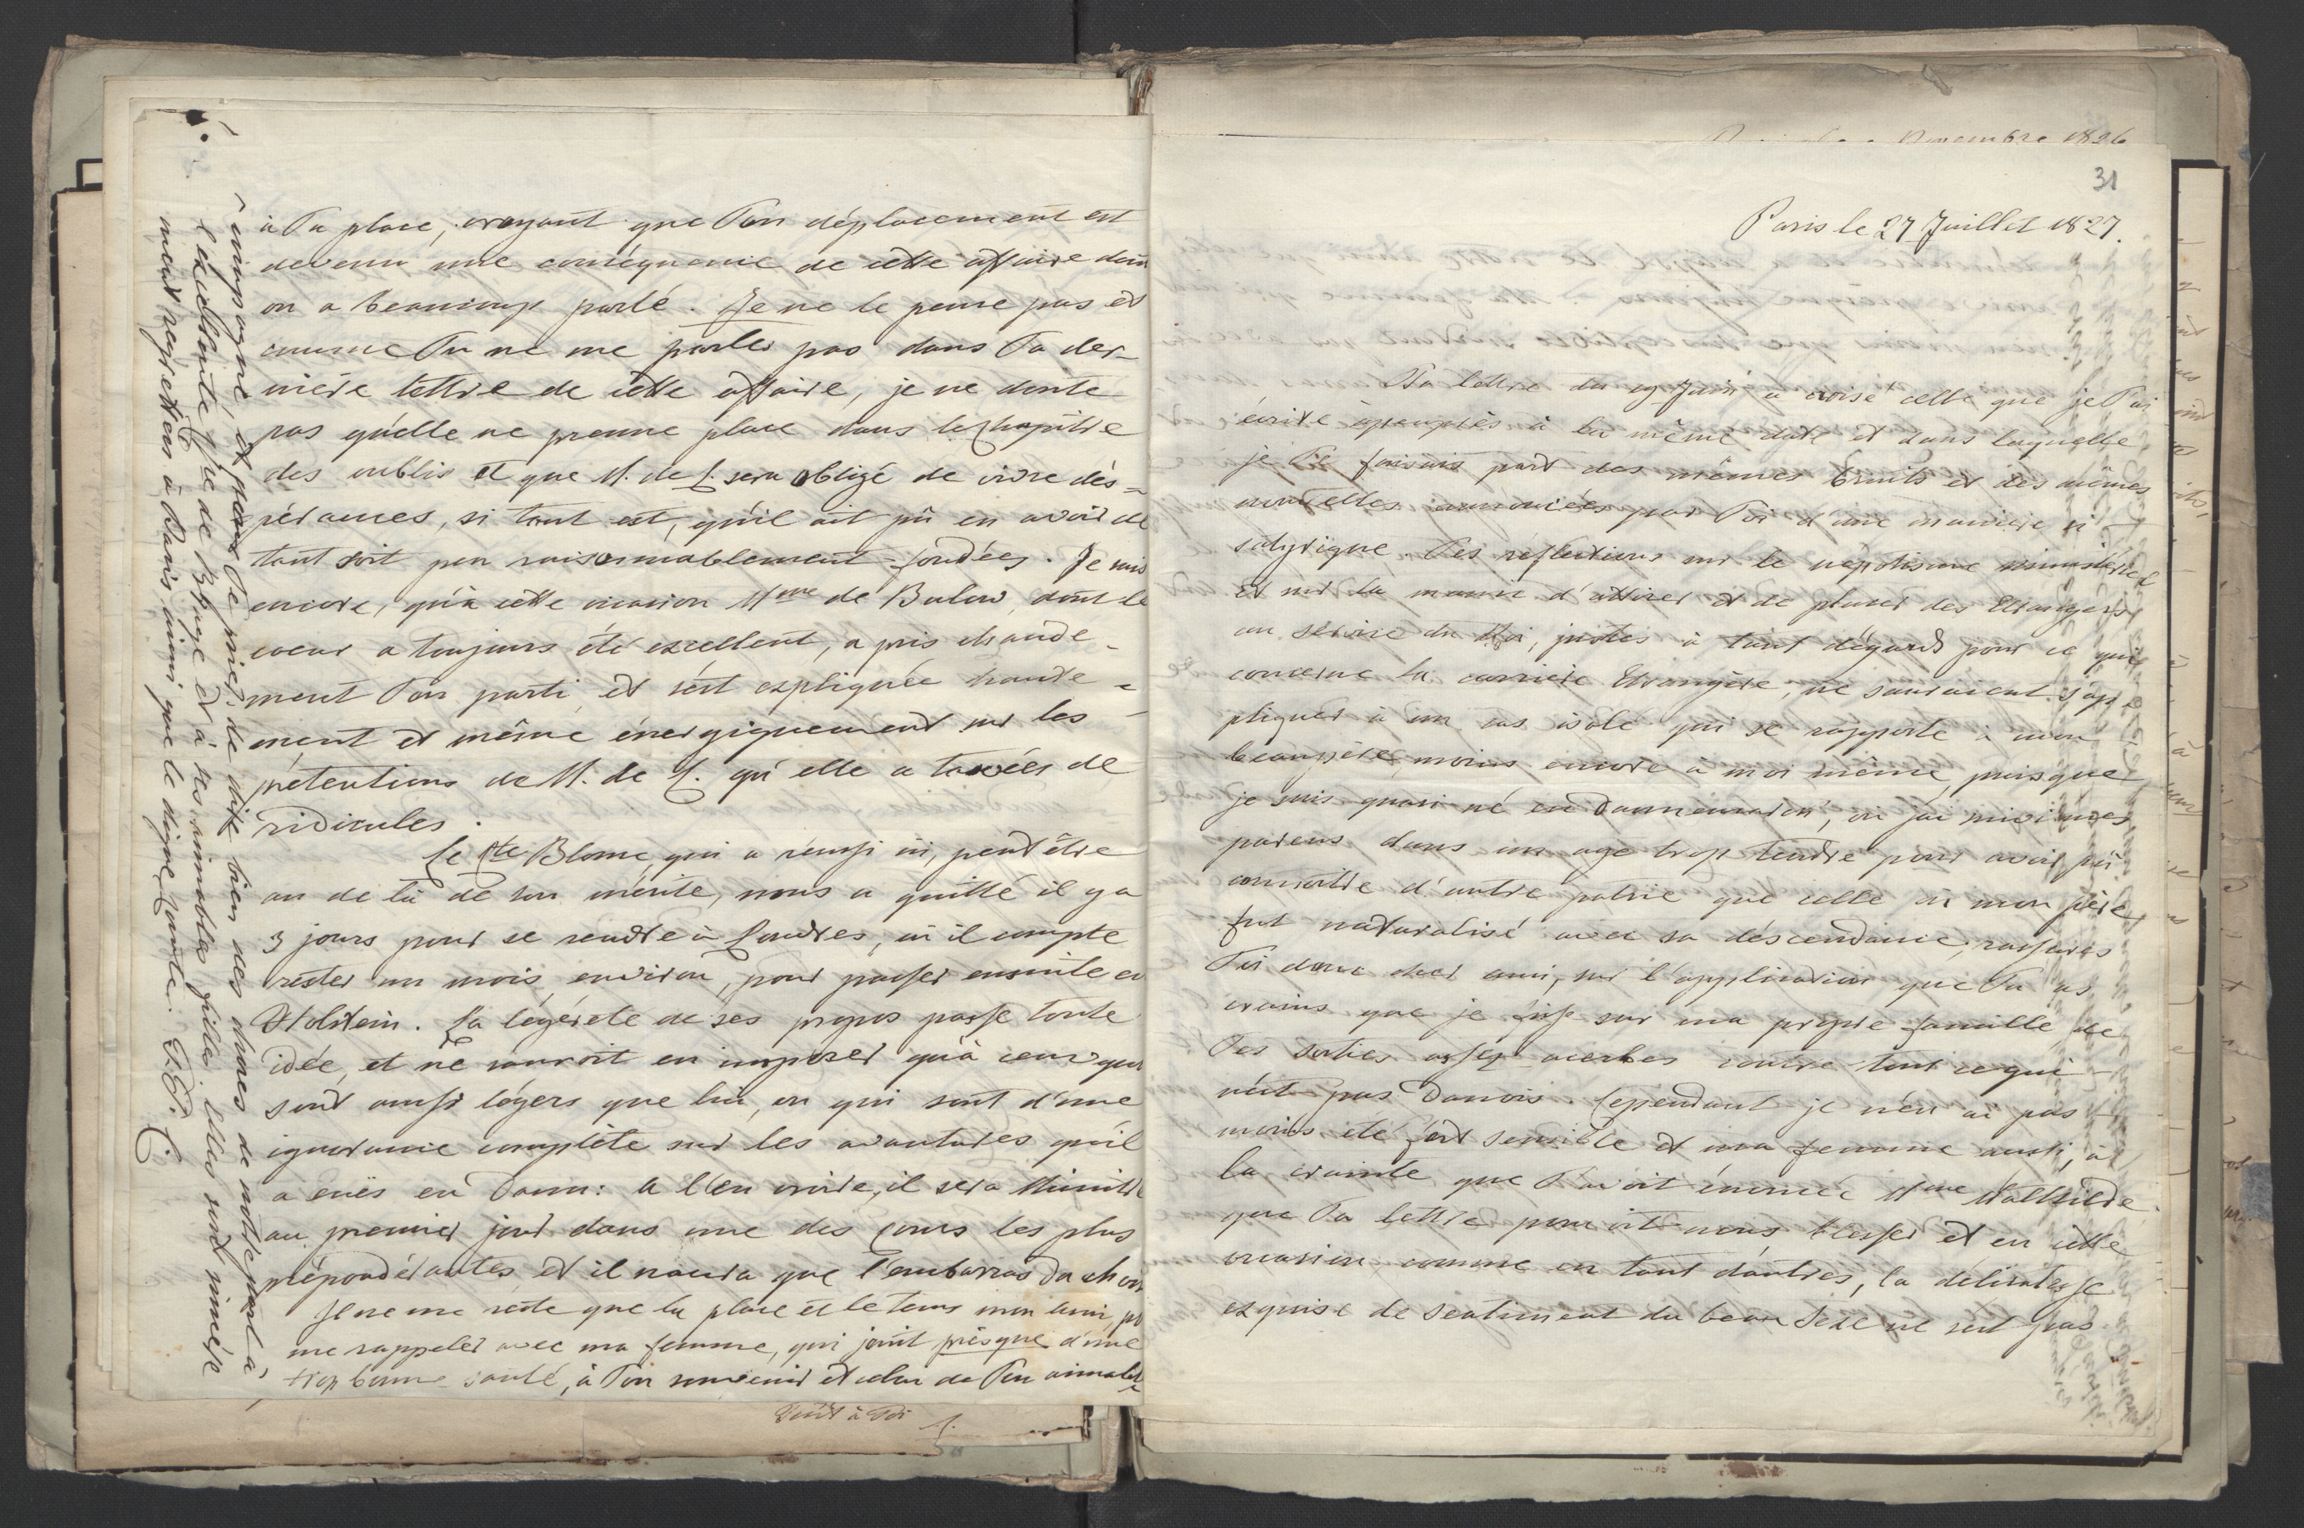 à Ta place, croyant que Ton déplacement est
devenu une conséquence de cette affaire dont
on a beaucoup parlé. Je ne le pense pas et
comme Tu ne me parles pas dans Ta der-
nière lettre de cette affaire, je ne doute
pas qu'elle ne prenne place dans le chapitre
des oublis et que M. de L. sera obligé de vivre dés=
pérances, si tant est, qu'il ait pû en avoir de
tant soit peu raisonnablement fondées. Je sais
encore, qu'à cette occasion Mme de Bulow, dont le
coeur a toujours été excellent, a pris chaude-
ment Ton parti et s'est expliquée chaude=
ment et même énergiquement sur les
prétentions de M. de L. qu'elle a taxées de
ridicules.
Le Cte Blome, qui a réussi ici, peut être
au de là de son mérite, nous a quitté il y a
3 jours pour se rendre à Londres, où il compte
rester un mois environ, pour passer ensuite en
Holstein. La légéreté de ses propos passe toute
idée, et ne sauroit en imposer qu'à ceux qui
sont aussi légers que lui, ou qui sont d'une
ignorance complète sur les avantures qu'il
a eües en Dann: A l'en croire, il sera Ministre
au premier jour dans une des Cours les plus
prépondérantes et il n'aura que l'embarras du choix
Il ne me reste que la place et le tems mon ami, pr
me rappeler avec ma femme, qui jouit presque d'une
trop bonne santé, à Ton souvenir et celui de Ton aimable
compagne, et pour Te prier de dire bien des choses de notre part à
l'excellente de et à son aimable fille. elles sont sincère
ment regrettées à Paris, ainsi que le digne Comte.
Tout à Toi
novembre 1826
31
Paris le 27 Juillet 1827.
Ta lettre du 19 Juin a croisé celle que je T'ai
écrite àpeuprès à la même date et dans laquelle
je Te faisais part des mêmes bruits et des mêmes
nouvelles annoncées par Toi d'une manière si
satyrique. Tes réflections sur le népotisme ministériel
et sur la manie d'attirer et de placer des Etrangers
au service du Roi, justes à tant d'égards pour ce qui
concerne la carrière Etrangère, ne sauraient s'ap=
pliquer à un cas isolé qui se rapporte à mon
beaupère, moins encore à moi même, puisque
je suis quasi né en Dannemarck, où j'ai suivi mes
parens dans un age trop tendre pour avoir pû
connoître d'autre patrie que celle où mon père
fut naturalisé avec sa descendance; rassures
Toi donc cher ami, sur l'application que Tu as
crains que je fisse sur ma propre famille, de
Tes sorties assez acerbes contre tout ce qui
n'est pas Danois. Cependant je n'en ai pas
moins été fort sensible et ma femme aussi, à
la crainte que T'avoit énoncée Mme Mathilde
que Ta lettre pourroit nous blesser et en cette
occasion, comme en tant d'autres, la délicatesse
exquise de sentiment du beau sexe ne s'est pas